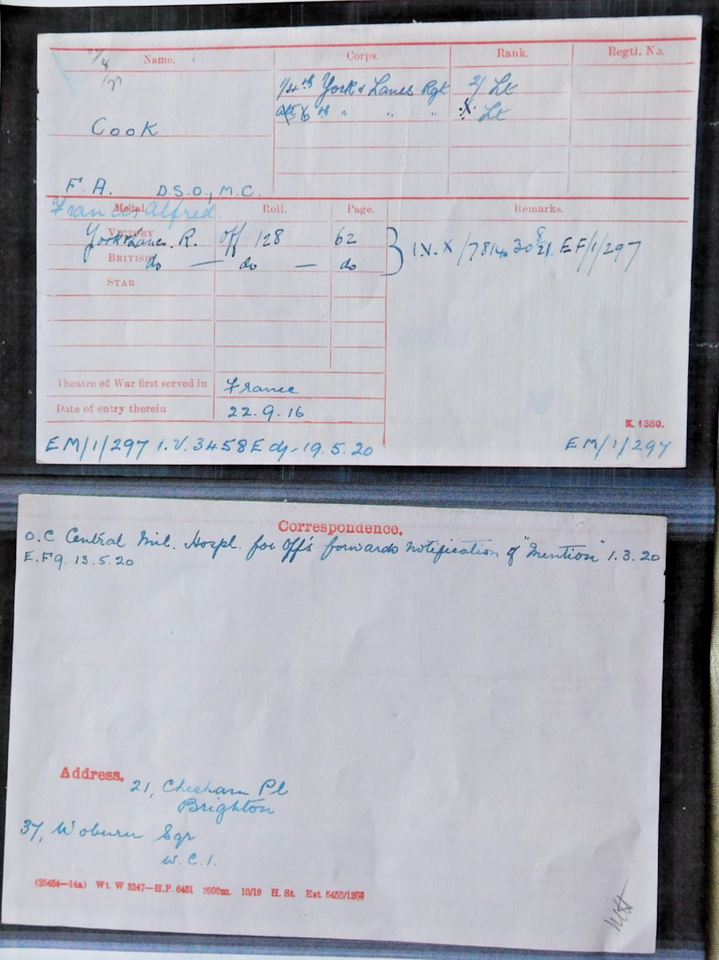 Name. Corps. Rank. Regtl. No.
1/4th York & Lancs Rgt 2/Lt
6th " " " Lt
Cook
F. A. D.S.O., M.C.
Francis Alfred.
Medal. Roll. Page. Remarks.
VICTORY York & Lanc. R. Off 128 62
BRITISH do — do — do
STAR
I.V. X /7814 EF/1/297
Theatre of War first served in France
Date of entry therein 22.9.16
K. 1380.
EM/1/297 I.V. 3458E 19.5.20 EM/1/297
Correspondence.
O.C Central Mil. Hospl. for Off's forwards notification of "Mention" 1.3.20
E.F9. 13.5.20
Address. 21, Chesham Pl
Brighton
37, Woburn Sqr
W.C.1.
(20454—14a) Wt. W 3347—H.P. 6451 2000m. 10/19 H. St.